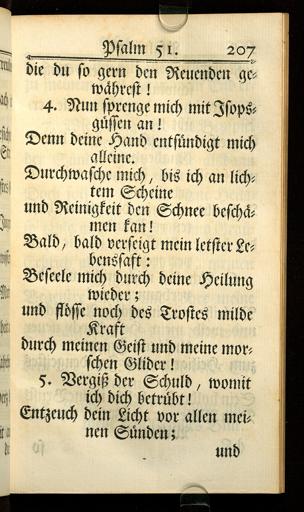 Psalm 51. 207
die du so gern den Reuenden ge-
währest!
4. Nun sprenge mich mit Isops-
güssen an!
Denn deine Hand entsündigt mich
alleine.
Durchwasche mich, bis ich an lich-
tem Scheine
und Reinigkeit den Schnee beschä-
men kan!
Bald, bald verseigt mein letster Le-
benssaft:
Beseele mich durch deine Heilung
wieder;
und flösse noch des Trostes milde
Kraft
durch meinen Geist und meine mor-
schen Glider!
5. Vergiß der Schuld, womit
ich dich betrübt!
Entzeuch dein Licht vor allen mei-
nen Sünden;
und